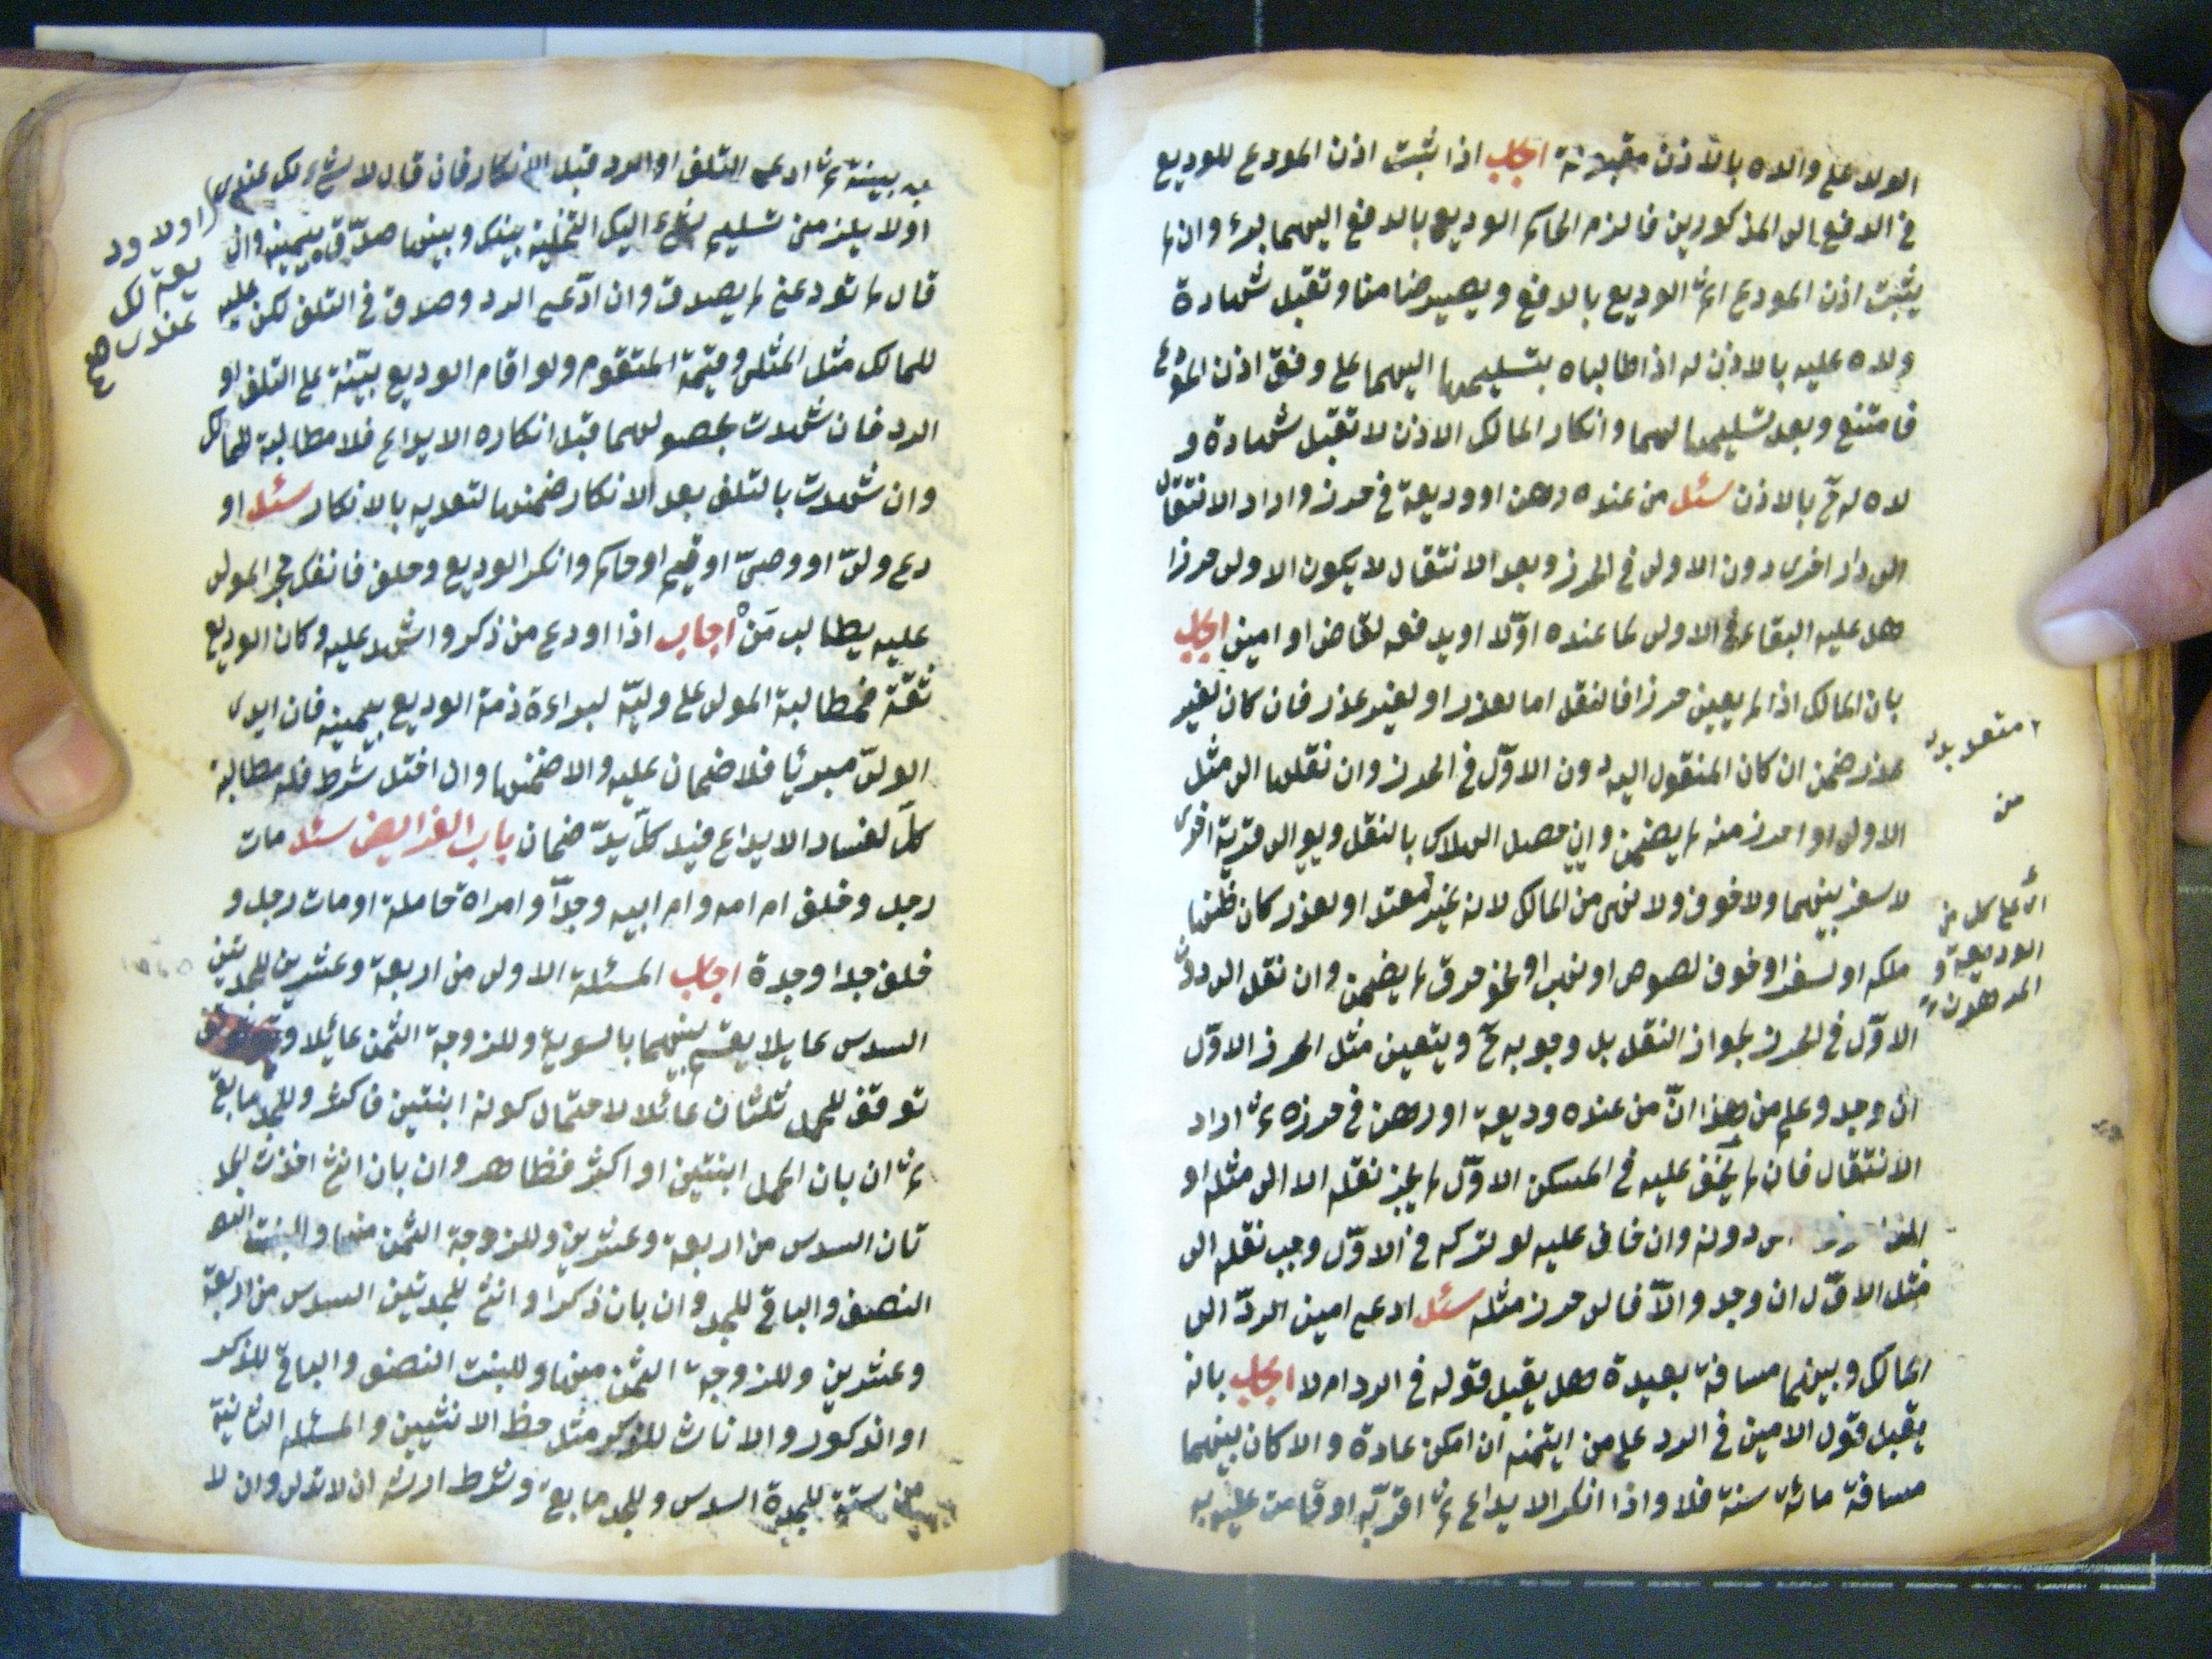 الولد على والده بالاذن مقبولة اجاب اذا ثبت اذن المودع للوديع
في الدفع الى المذكورين فالزم الحاكم الوديع بالدفع اليهما برء وان لم
يثبت اذن المودع اثم الوديع بالدفع ويصير ضامنا وتقبل شهادة
ولده عليه بالاذن له اذا طالباه بتسليمها اليهما على وفق اذن
فامتنع وبعد تسليمها لهما وانكار المالك الاذن لا تقبل شهادة و
لده له ح بالاذن سئل من عنده رهن او وديعة في حرز واراد الانتقال
الى دار اخرى دون الاولى في الحرز وبعد الانتقال لا يكون الاولى حرزا
هل عليه البقاء في الاولى لما عنده اوّلا او يدفعه لقاض او امين اجاب
بان المالك اذا لم يعين حرزا فالنقل اما بعذر او لغير عذر فان كان لغير
عذر ضمن ان كان المنقول اليه دون الاوّل في الحرز وان نقلها الى مثل
الاولى او احرز منه لم يضمن وان حصل الهلاك بالنقل ويو الى قرية اخرى
لا سفر بينهما ولا خوف ولا نهى من المالك لانه غير معتد او بعذر كان ظنها
ملكه او لسفر او خوف لصوص او نهب او نحو حرق لم يضمن وان نقل الى دون
الاوّل في الحرز لجواز النقل بل وجوبه ح ويتعين مثل الحرز الاوّل
ان وجد وعلم من هذا انّ من عنده وديعة او رهن في حرزه ثم اراد
الانتقال فان لم يخف عليه في المسكن الاوّل لم يجز نقله الا الى مثله او
دونه وان خاف عليه لو تركه في الاوّل وجب نقله الى
مثل الاوّل ان وجد والّا فالى حرز مثله سئل ادعى امين الردّ الى
المالك وبينهما مسافة بعيدة هل يقبل قوله في الرد ام لا اجاب بانه
يقبل قول الامين في الرد على من ايتمنه ان امكن عادة والا كان بينهما
مسافة مائة سنة فلا واذا انكر الايداع ثم اقرّ به او قامت عليه به
متعد بل
من
اى على كل من
الوديعة و
المرهون
به بينة ثم ادعى التلف او الرد قبل الانكار فان قال لا شيء لك عندى
او لا يلزمنى تسليم شيء اليك التخلية بينك وبينها صدّق بيمينه وان
قال لم تودعنى لم يصدق وان ادّعى الرد وصدق في التلف لكن عليه
للمالك مثل المثلى وقيمة المتقوم ولو اقام الوديع بيّنة على التلف او
الرد فان شهدت بحصولهما قبل انكاره الايداع فلا مطالبة للمالك
وان شهدت بالتلف بعد الانكار ضمنها لتعديه بالانكار سئل او
دع ولىّ او وصىّ او قيّم او حاكم وانكر الوديع وحلف فانفك حجر المولى
عليه يطالب مَنْ اجاب اذا اودع من ذكر واشهد عليه وكان الوديع
ثقة فمطالبة المولى على وليّه لبراءة ذمة الوديع بيمينه فان
الولىّ فلا ضمان عليه والا ضمنها وان اختل شرط فله مطالبة
كلّ لفساد الايداع فيد كلّ يدّ ضمان باب الفرايض سئل مات
رجل وخلف ام امه وام ابيه وجدّا وامراة حاملة او مات رجل و
خلف جدا وجدة اجاب المسئلة الاولى من اربعة وعشرين للجدتين
السدس عايلا يقسم بينهما بالسوية وللزوجة الثمن عائلا و
توقف للحمل ثلثان عائلا لاحتمال كونه ابنتين فاكثر وللجد ما بقى
ثم ان بان الحمل ابنتين او اكثر فظاهر وان بان انثى اخذت الجد
تان السدس من اربعة وعشرين وللزوجة الثمن منها وللبنت
النصف والباقى للجد وان بان ذكرا او انثى للجدتين السدس من اربعة
وعشرين وللزوجة الثمن منها وللبنت النصف والباقى للذكر
او الذكور والاناث للذكر مثل حظ الانثيين والمسئلة الثانية
من ستة للجدة السدس وللجد ما بقى وشرط ارثه ان لا تدلى وان لا
او لا ود
يعة لك
عندى صح